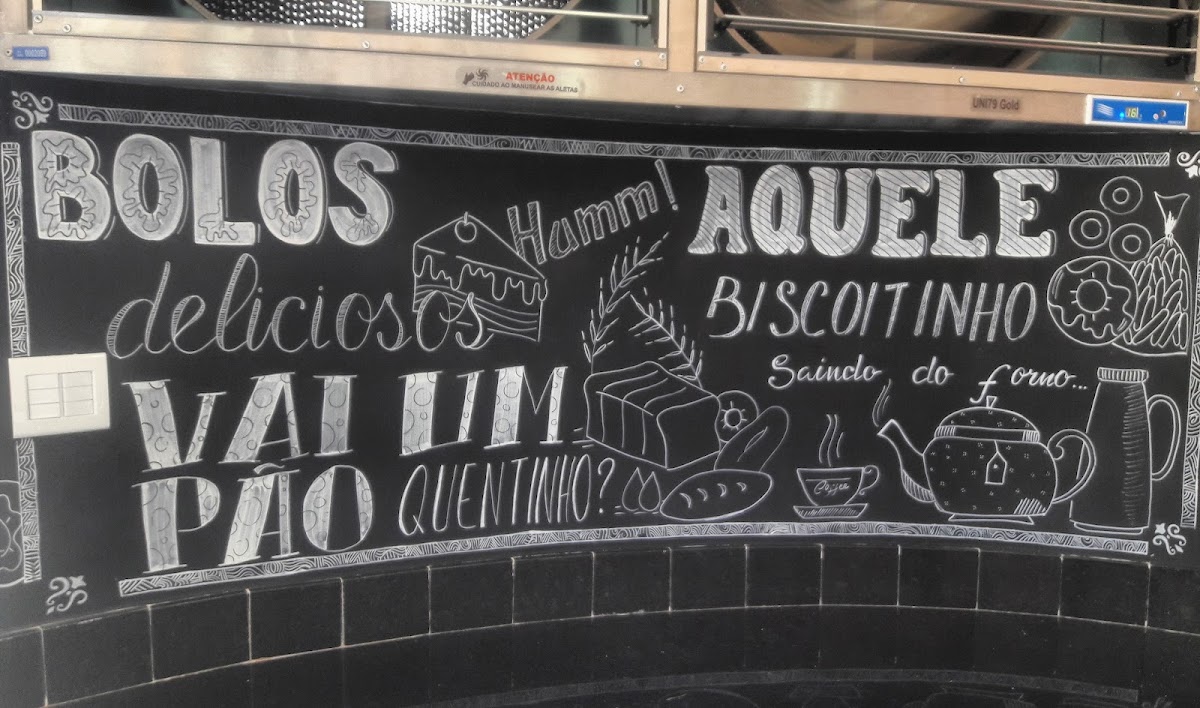 ATENÇÃO
CUIDADO AO MANUSEAR AS ALETAS
UNI79 Gold
BOLOS
deliciosos
Humm!
VAI UM
PÃO QUENTINHO?
AQUELE
BISCOITINHO
Saindo do forno...
Coffee